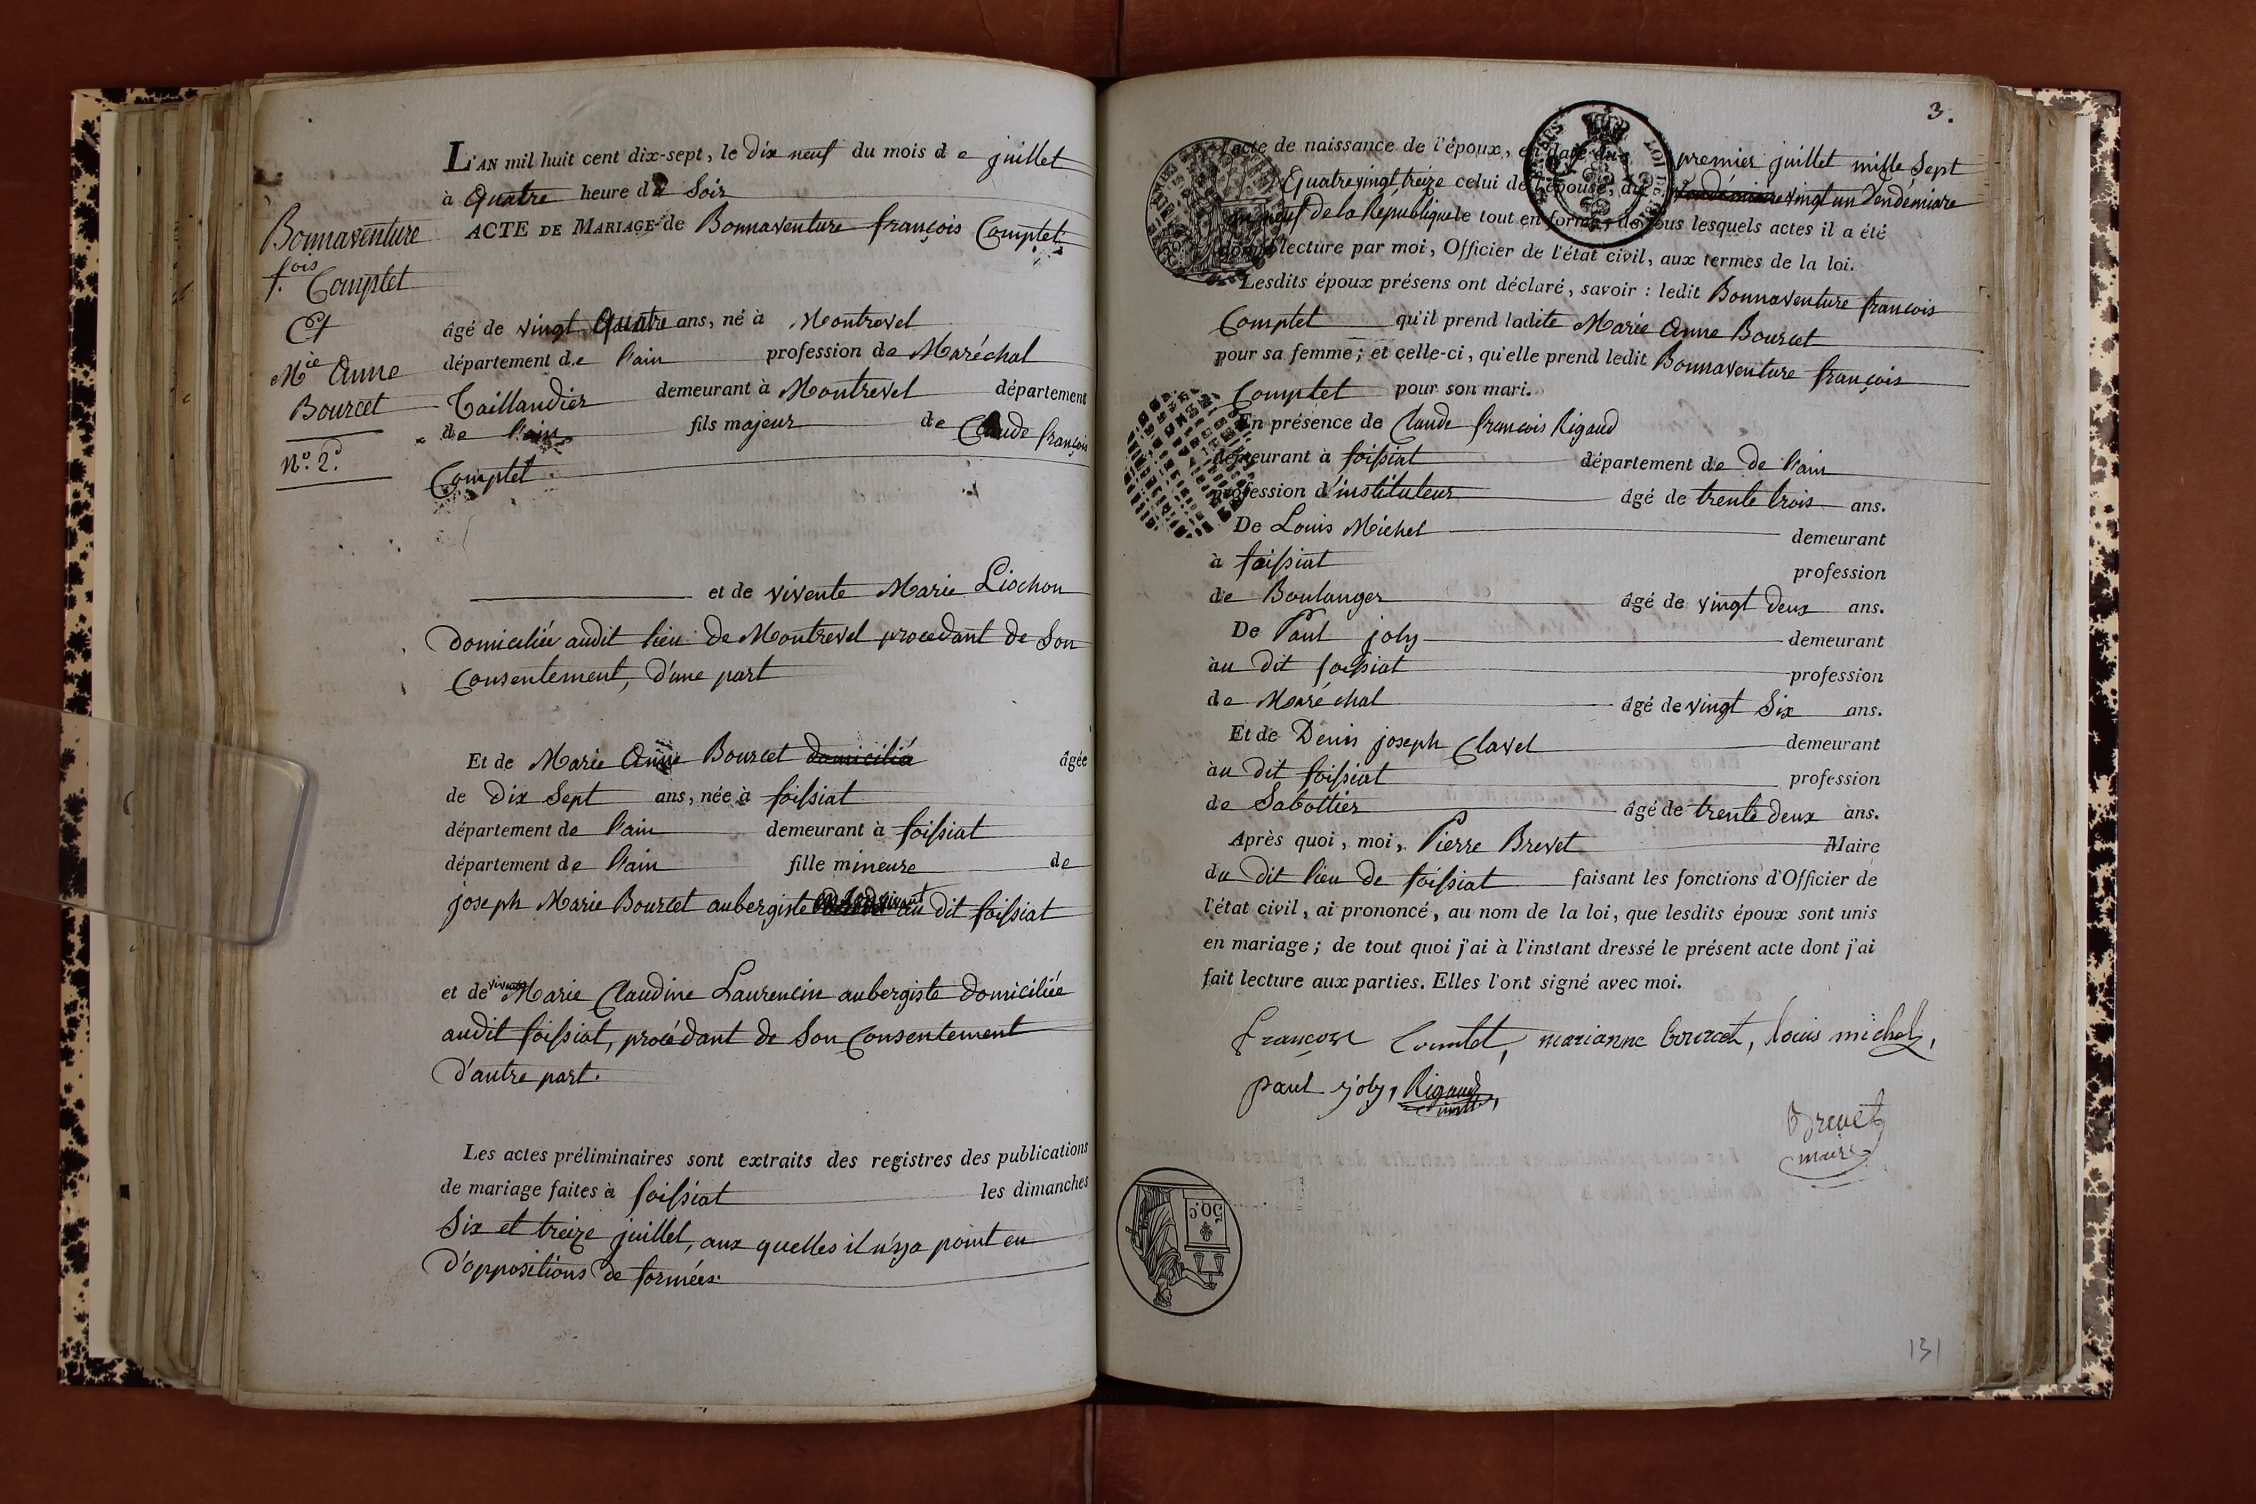 L'AN mil huit cent dix-sept, le dix neuf du mois de juillet
à Quatre heure du Soir
ACTE DE MARIAGE de Bonnaventure françois Comptet
Bonnaventure
f.ois Comptet
Et
M.ie Anne
Bourcet
N.o 2.
âgé de vingt Quatre ans, né à Montrevel
département de l'ain profession de Maréchal
Taillandier demeurant à Montrevel département
de l'ain fils majeur de Claude françois
Comptet
et de vivente Marie Liochon
domiciliée audit lieu de Montrevel procedant de Son
Consentement, d'une part
Et de Marie Anne Bourcet domicilié âgée
de dix Sept ans, née à foissiat
département de l'ain demeurant à foissiat
département de l'ain fille mineure de
joseph Marie Bourcet aubergiste au dit foissiat
et de vivente Marie Claudine Laurencin aubergiste domiciliée
audit foissiat, procédant de Son Consentement
d'autre part.
Les actes préliminaires sont extraits des registres des publications
de mariage faites à foissiat les dimanches
Six et treize juillet, aux quelles il n'ya point eu
d'oppositions de formées.
3.
l'acte de naissance de l'époux, en date du premier juillet mille Sept
Quatrevingt treize celui de l'épouse, du vingt un Vendémiaire
an neuf de la Republique le tout en forme; de tous lesquels actes il a été
donné lecture par moi, Officier de l'état civil, aux termes de la loi.
Lesdits époux présens ont déclaré, savoir : ledit Bonnaventure françois
Comptet qu'il prend ladite Marie Anne Bourcet
pour sa femme; et celle-ci, qu'elle prend ledit Bonnaventure françois
Comptet pour son mari.
En présence de Claude francois Rigaud
demeurant à foissiat département de de l'ain
profession d'instituteur âgé de trente trois ans.
De Louis Michel demeurant
à foissiat profession
de Boulanger âgé de vingt deux ans.
De Paul joly demeurant
au dit foissiat profession
de Maréchal âgé de vingt Six ans.
Et de Denis joseph Clavel demeurant
au dit foissiat profession
de Sabottier âgé de trente deux ans.
Après quoi, moi, Pierre Brevet Maire
du dit lieu de foissiat faisant les fonctions d'Officier de
l'état civil, ai prononcé, au nom de la loi, que lesdits époux sont unis
en mariage; de tout quoi j'ai à l'instant dressé le présent acte dont j'ai
fait lecture aux parties. Elles l'ont signé avec moi.
françois Comtet, marianne bourcet, louis michel,
paul joly, Rigaud
Brevet
maire
50.c
131